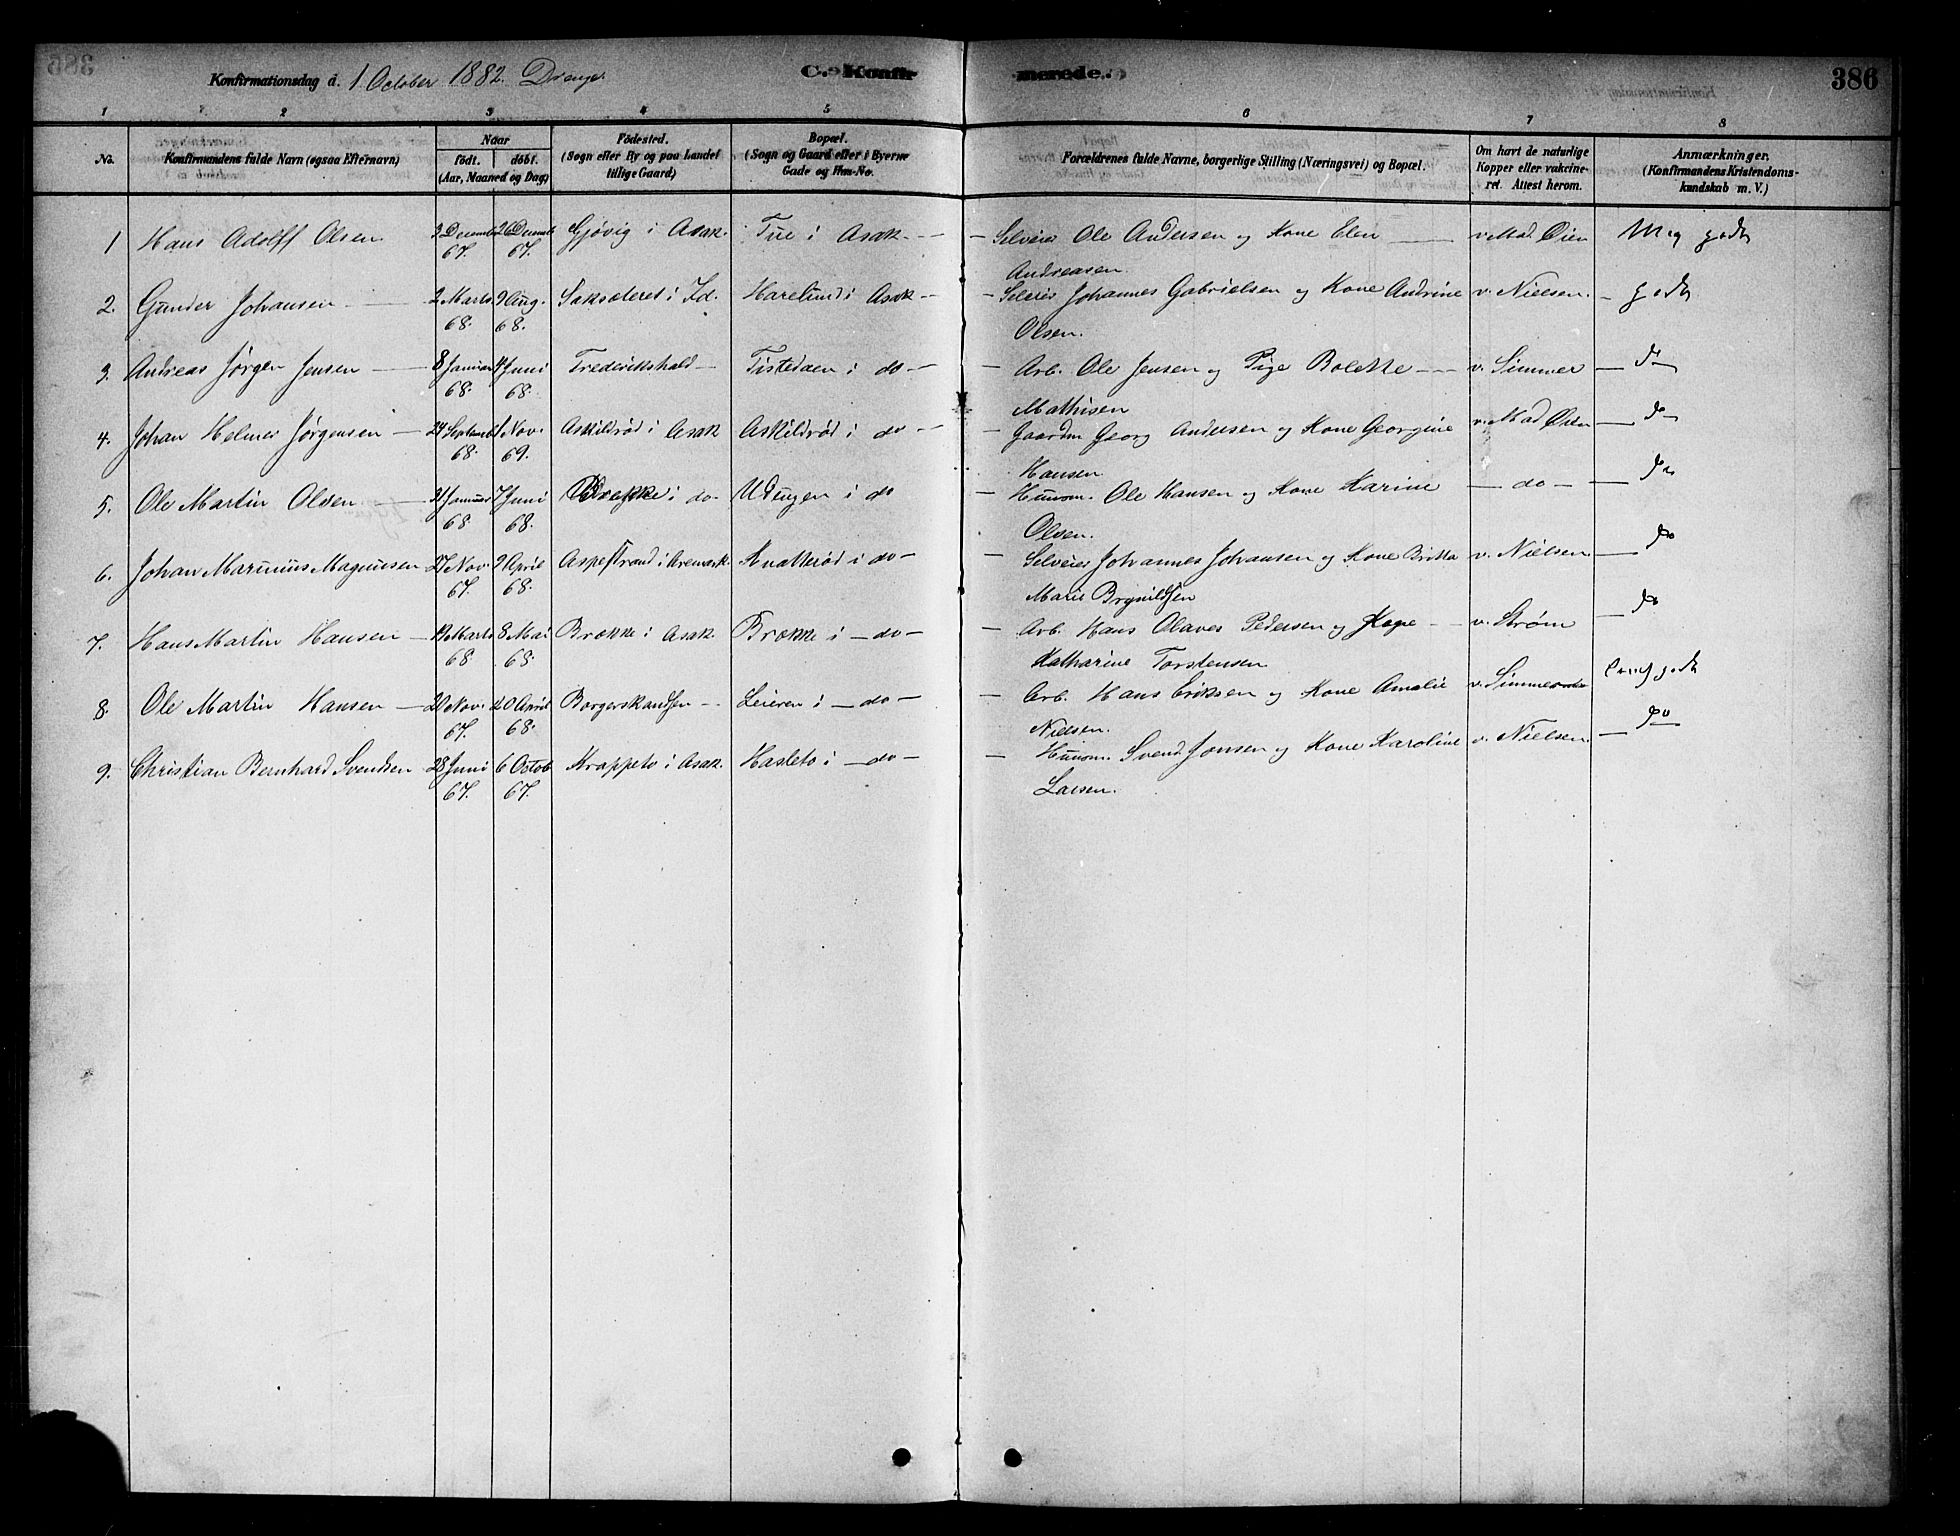 Konfirmationsdag d. 1 October 1882. Drenge.
C. Konfirmerede.
386
1 2 3 4 5 6 7 8
No.
Konfirmandens fulde Navn (ogsaa Efternavn)
Naar
født. døbt.
(Aar, Maaned og Dag)
Födested.
(Sogn eller By og paa Landet
tillige Gaard)
Bopæl.
(Sogn og Gaard eller i Byerne
Gade og Hus-No.
Forældrenes fulde Navne, borgerlige Stilling (Næringsvei) og Bopæl.
Om havt de naturlige
Kopper eller vakcine-
ret. Attest herom.
Anmærkninger.
(Konfirmandens Kristendoms-
kundskab m. V.)
1 Hans Adolff Olsen 3 Decemb 67. 26 Decemb 67. Gjøvig i Asak. Tue i Asak. — Selveier Ole Andersen og Kone Elen — v. Mad. Øien Meg godt
Andreasen.
2. Gunder Johansen — 2 Marts 68. 9 Aug. 68. Saksæteret i Id. Harelund i Asak — Seleier Johannes Gabrielsen og Kone Andrine v. Nielsen. — godt
Olsen.
3. Andreas Jørgen Jensen — 8 Januar 68. 4 Juni 68. Frederikshald — Tistedaen i do — Arb. Ole Jensen og Pige Bolette — v. Simmer — do
Mathisen
4. Johan Helmer Jørgensen — 24 Septemb 68. 1 Nov. 69. Askildrød i Asak Askildrød i do — Gaardm Georg Andersen og Kone Georgine v. Mad Øien — do
Hansen.
5. Ole Martin Olsen — 31 Januar 68 7 Juni 68. Brække i do. Udengen i do — Huusm. Ole Hansen og Kone Karine — do — — do
Olsen.
6. Johan Marinius Magnussen 27 Nov. 67. 9 April 68. Aspestrand i Aremark. Knatterød i do — Selveier Johannes Johansen og Kone Britta v. Nielsen — do
Marie Brynildsen
7. Hans Martin Hansen — 19 Marts 68 8 Mai 68. Brække i Asak Brække i — do — Arb. Hans Olaves Pedersen og Kone — v. Strøm — do
Katharine Torstensen.
8. Ole Martin Hansen — 20 Nov. 67. 20 April 68. Borgerskandsen — Leieren i — do — Arb. Hans Eriksen og Kone Amalie v. Simmer godt
Nielsen.
9. Christian Bernhard Svendsen 28 Juni 67. 6 Octob 67. Krappeto i Asak. Hasleto i — do — Huusm. Svend Jonsen og Kone Karoline v. Nielsen. — do
Larsen.